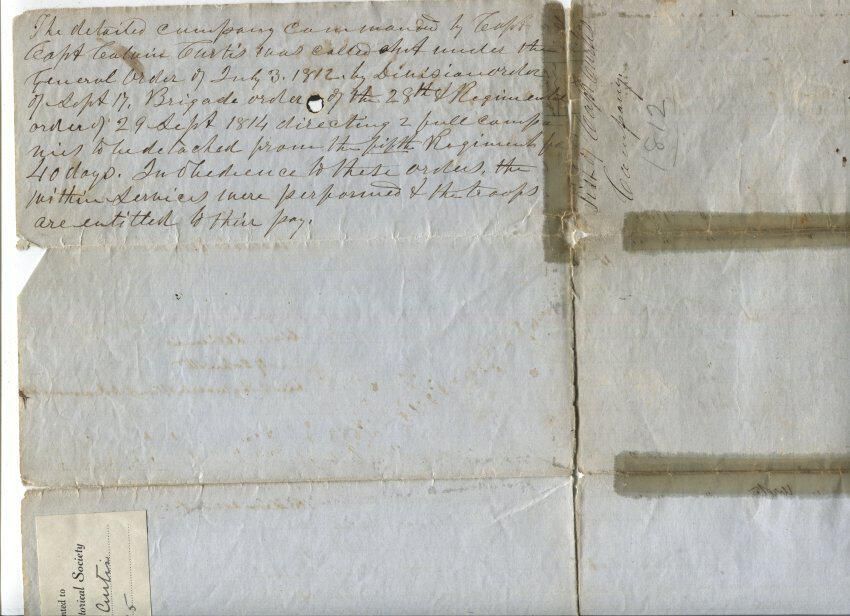 The detailed company commanded by Capt
Capt Calvin Curtis was called out under the
General Order of July 3. 1812. by Division order
of Sept 17, Brigade order of the 28th & Regimental
order of 29 Sept 1814 directing 2 full compa
nies to be detached from the fifth Regiment for
40 days. In obedience to these orders, the
within services were performed & the troops
are entitled to their pay.
List of Capt Curtis
Company
1812
nted to
torical Society
Curtis
5